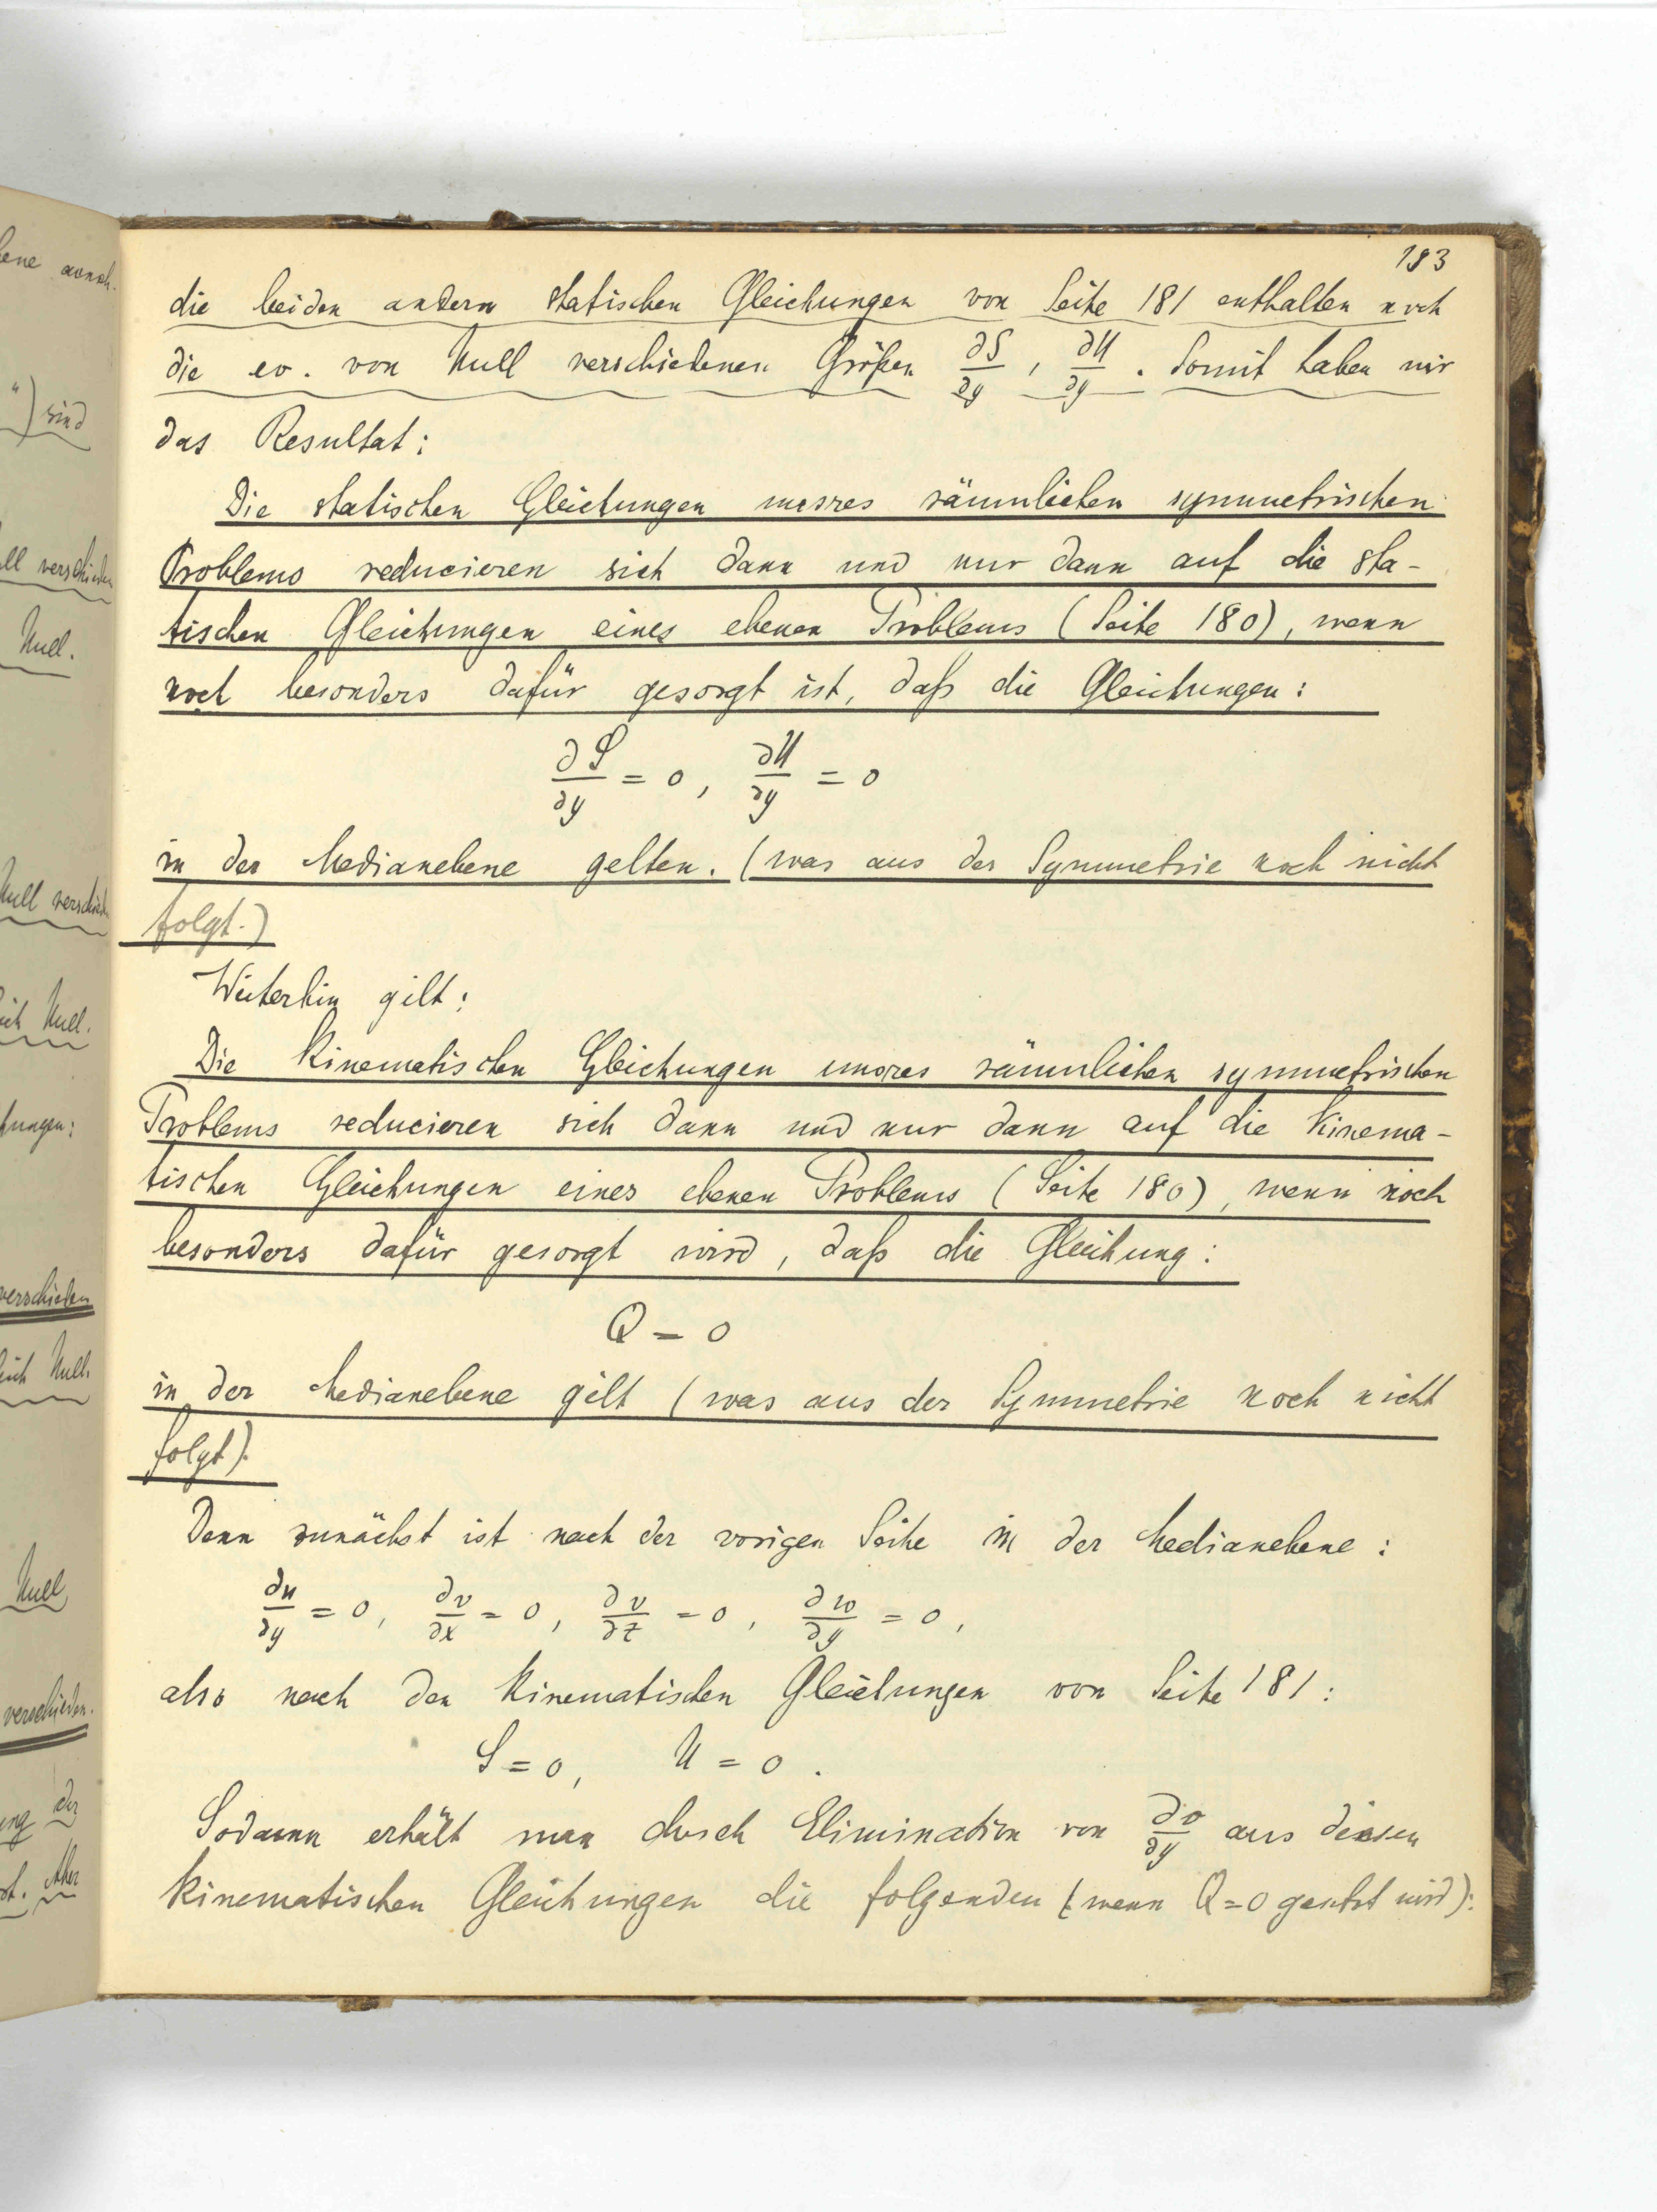 183
die beiden andern statischen Gleichungen von Seite 181 enthalten noch
die ev. von Null verschiedenen Größen ∂S/∂y, ∂U/∂y. Somit haben wir
das Resultat:
Die statischen Gleichungen unsres räumlichen symmetrischen
Problems reducieren sich dann und nur dann auf die sta-
tischen Gleichungen eines ebenen Problems (Seite 180), wenn
noch besonders dafür gesorgt ist, daß die Gleichungen:
∂S/∂y = 0, ∂U/∂y = 0
in der Medianebene gelten. (was aus der Symmetrie noch nicht
folgt.)
Weiterhin gilt:
Die kinematischen Gleichungen unsres räumlichen symmetrischen
Problems reducieren sich dann und nur dann auf die kinema-
tischen Gleichungen eines ebenen Problems (Seite 180), wenn noch
besonders dafür gesorgt wird, daß die Gleichung:
Q = 0
in der Medianebene gilt (was aus der Symmetrie noch nicht
folgt).
Denn zunächst ist nach der vorigen Seite in der Medianebene:
∂u/∂y = 0, ∂v/∂x = 0, ∂v/∂z = 0, ∂w/∂y = 0,
also nach den kinematischen Gleichungen von Seite 181:
S = 0, U = 0.
Sodann erhält man durch Elimination von ∂v/∂y aus diesen
kinematischen Gleichungen die folgenden (wenn Q=0 gesetzt wird):
sind
verschieden
Null.
Null verschieden
Null.
verschieden
Null.
Null
verschieden.
der